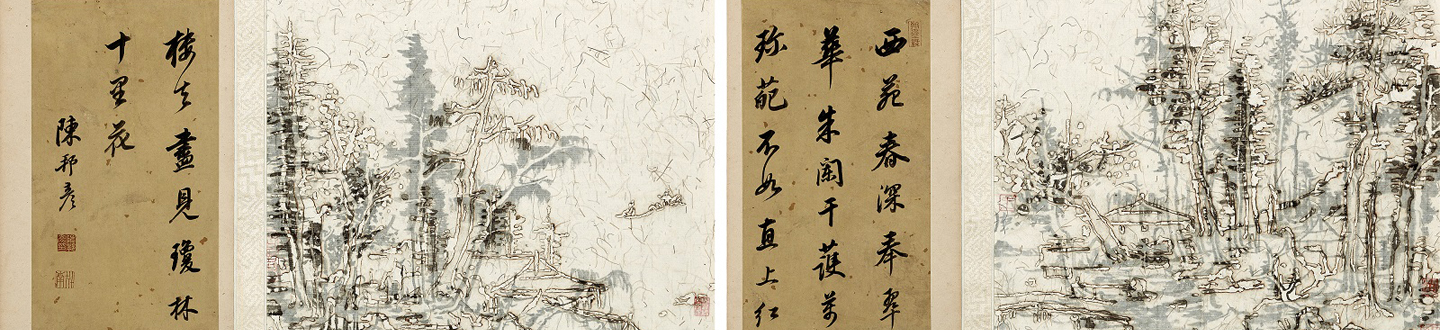 西苑春深奉翠
華朱闌干護萬
珎葩不如直上紅
樓去盡見瓊林
十里花
陳邦彥